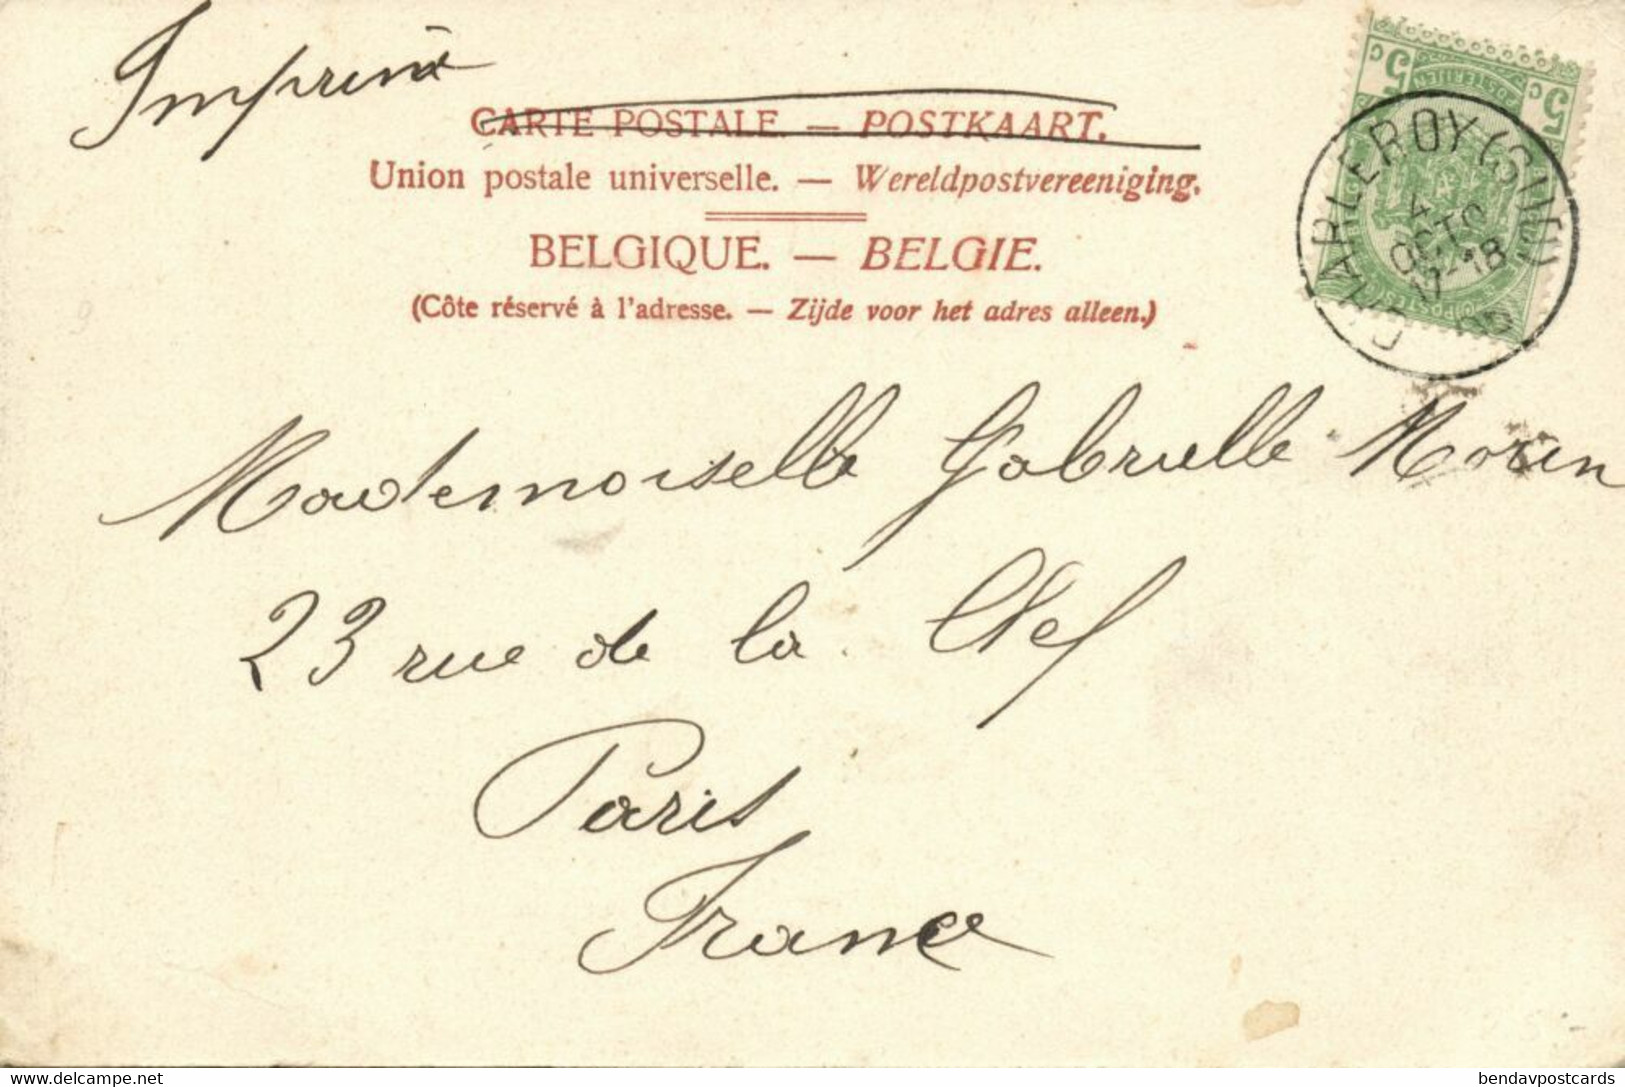 Imprimé
CARTE POSTALE. — POSTKAART.
Union postale universelle. — Wereldpostvereeniging.
BELGIQUE. — BELGIE.
(Côte réservé à l'adresse. — Zijde voor het adres alleen.)
5c 5c
CHARLEROY (SUD)
OCTO
17-18
Mademoiselle Gabrielle Morin
23 rue de la Clef
Paris
France
www.delcampe.net
bendavpostcards